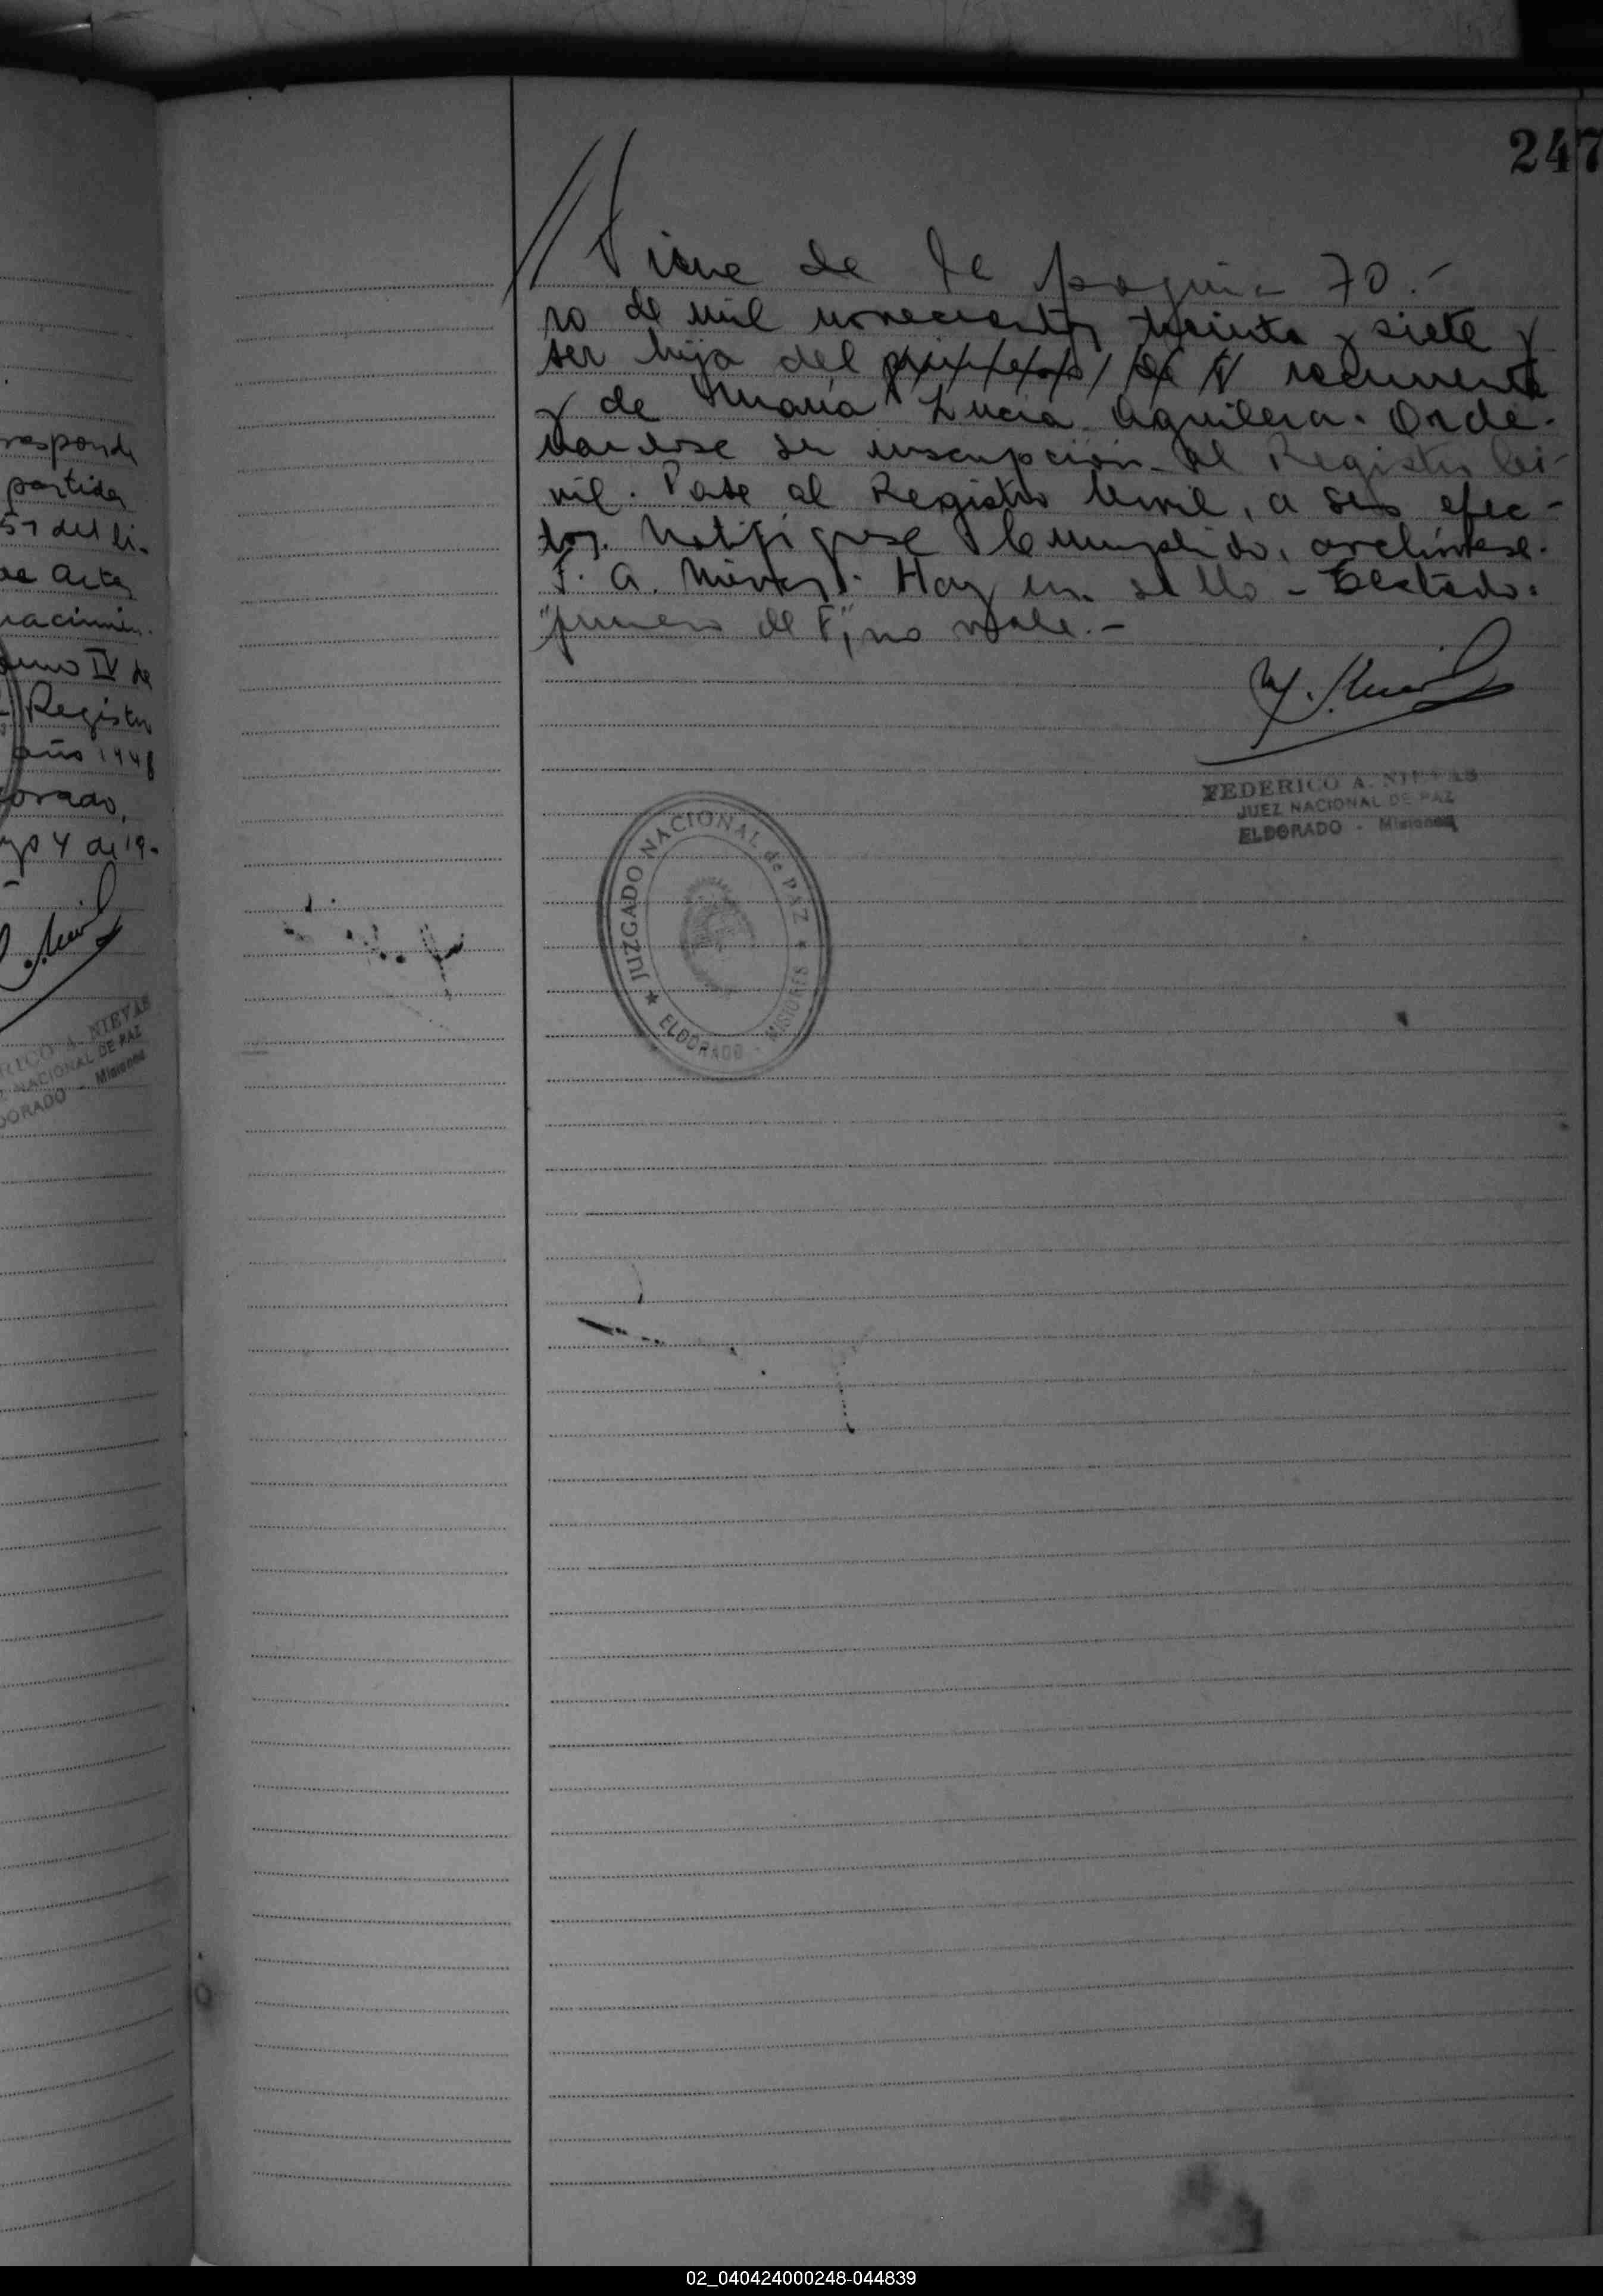 responde
partida
51 del li-
de actas
nacimien-
tomo IV de
Registro
año 1948
dorado,
4 de 19-
RICO A. NIEVAS
NACIONAL DE PAZ
DORADO - Misiones
247
// Viene de la pagina 70.-
ro de mil novecientos treinta y siete y
ser hija del primero de F recurrente
y de María Lucia Aguilera. Orde-
nandose su inscripción al Registro Ci-
vil. Pase al Registro Civil, a sus efec-
tos. Notifiquese Cumplido, archívese.
F. A. Nievas. Hay un sello - Testado:
"primero de F", no vale.-
FEDERICO A. NIEVAS
JUEZ NACIONAL DE PAZ
ELDORADO - Misiones
JUZGADO NACIONAL de PAZ
★ ELDORADO - MISIONES ★
02_040424000248-044839